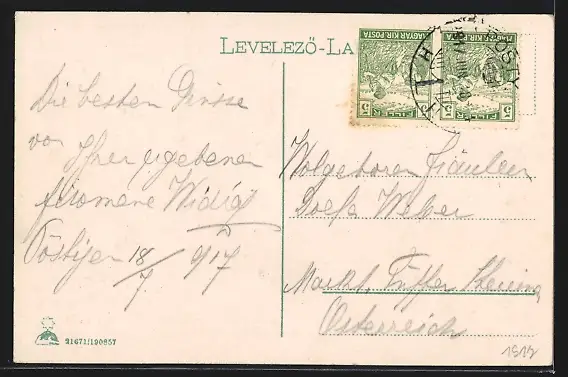 LEVELEZŐ-LA
MAGYAR KIR. POSTA
MAGYAR KIR. POSTA
5 FILLÉR 5
FILLÉR 5
Die besten Grüsse
von Ihrer ergebenen
Widig
Pöstyen 18/7 917
Wolgeboren Fräulein
Josefa Weber
Markt Tüffer
Österreich
21671/190857
1917